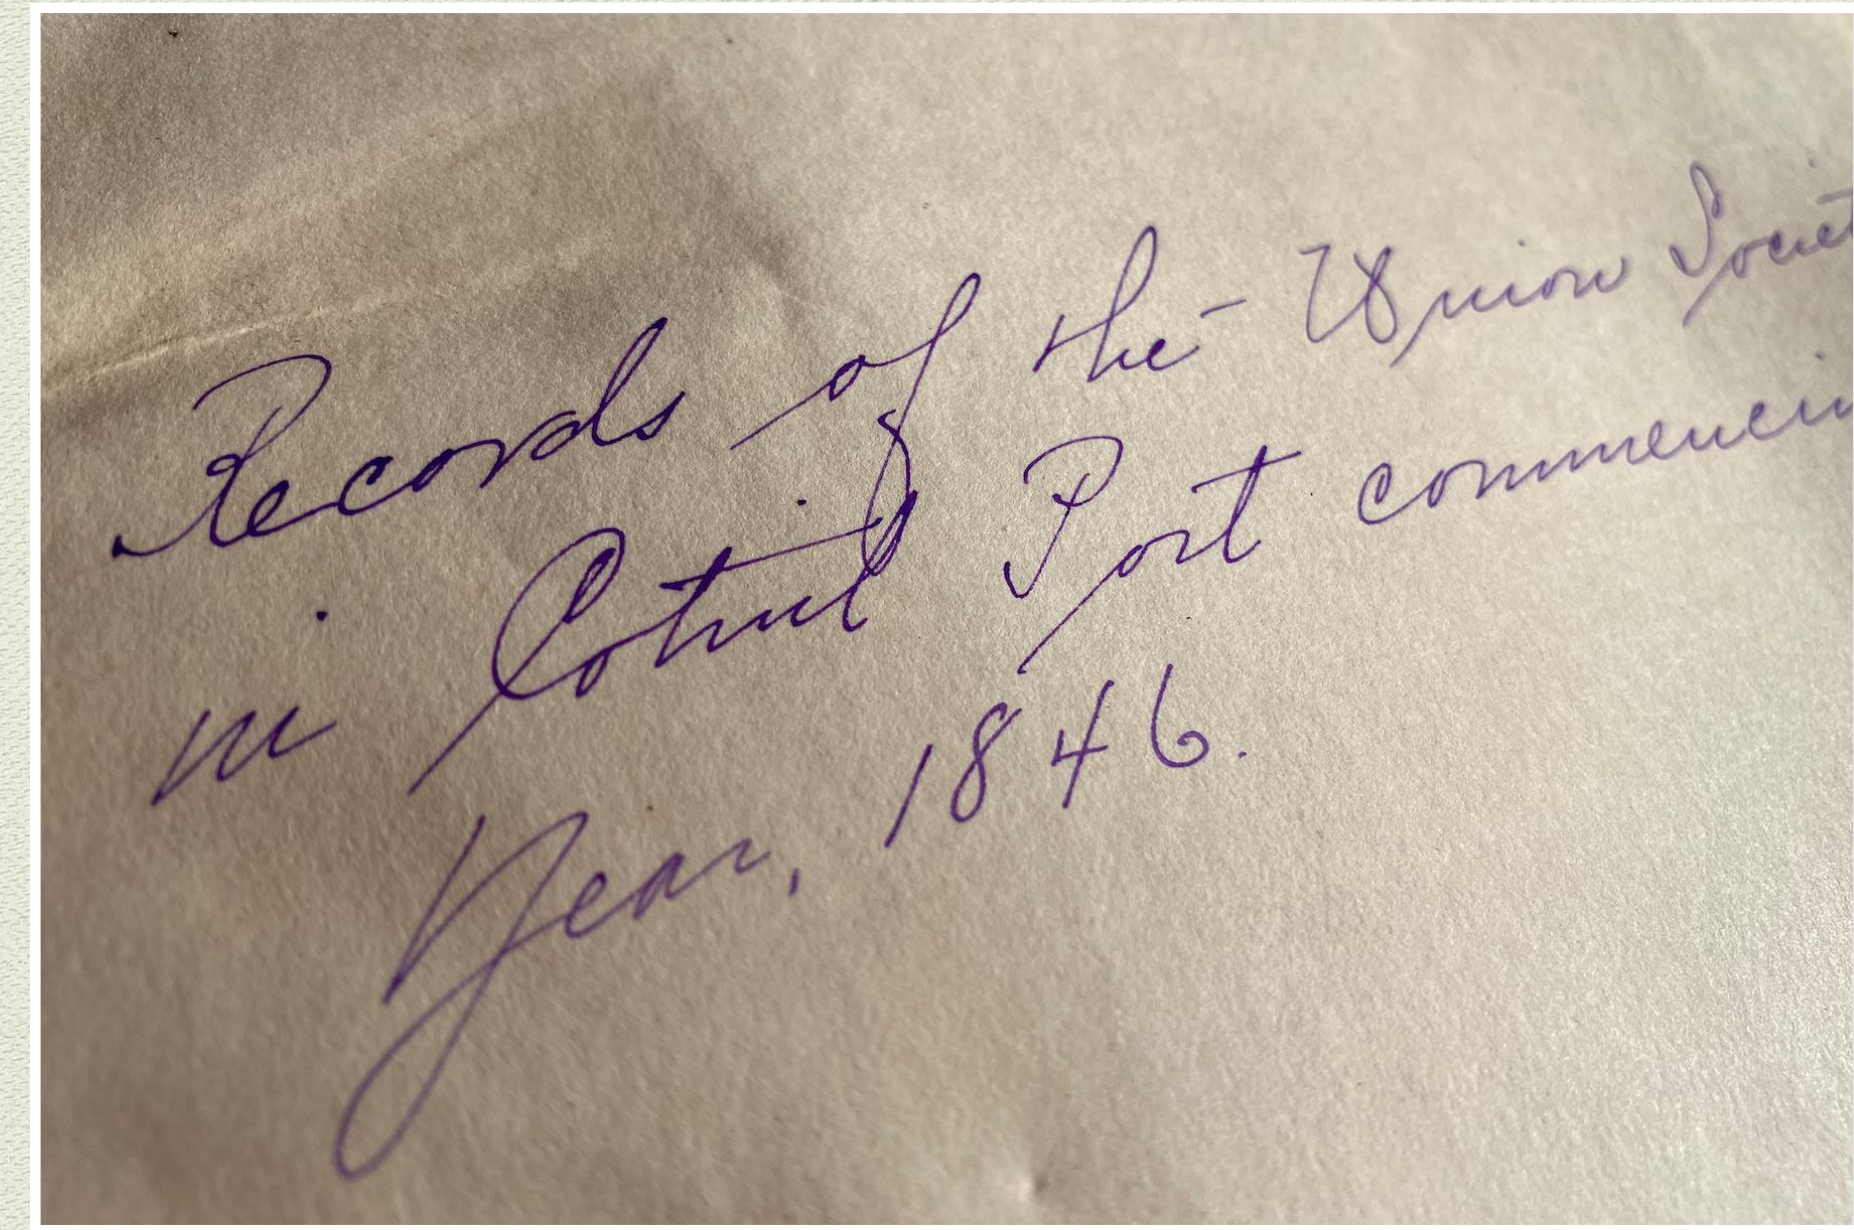 Records of the Union Societ
in Cotuit Port commencin
Year, 1846.